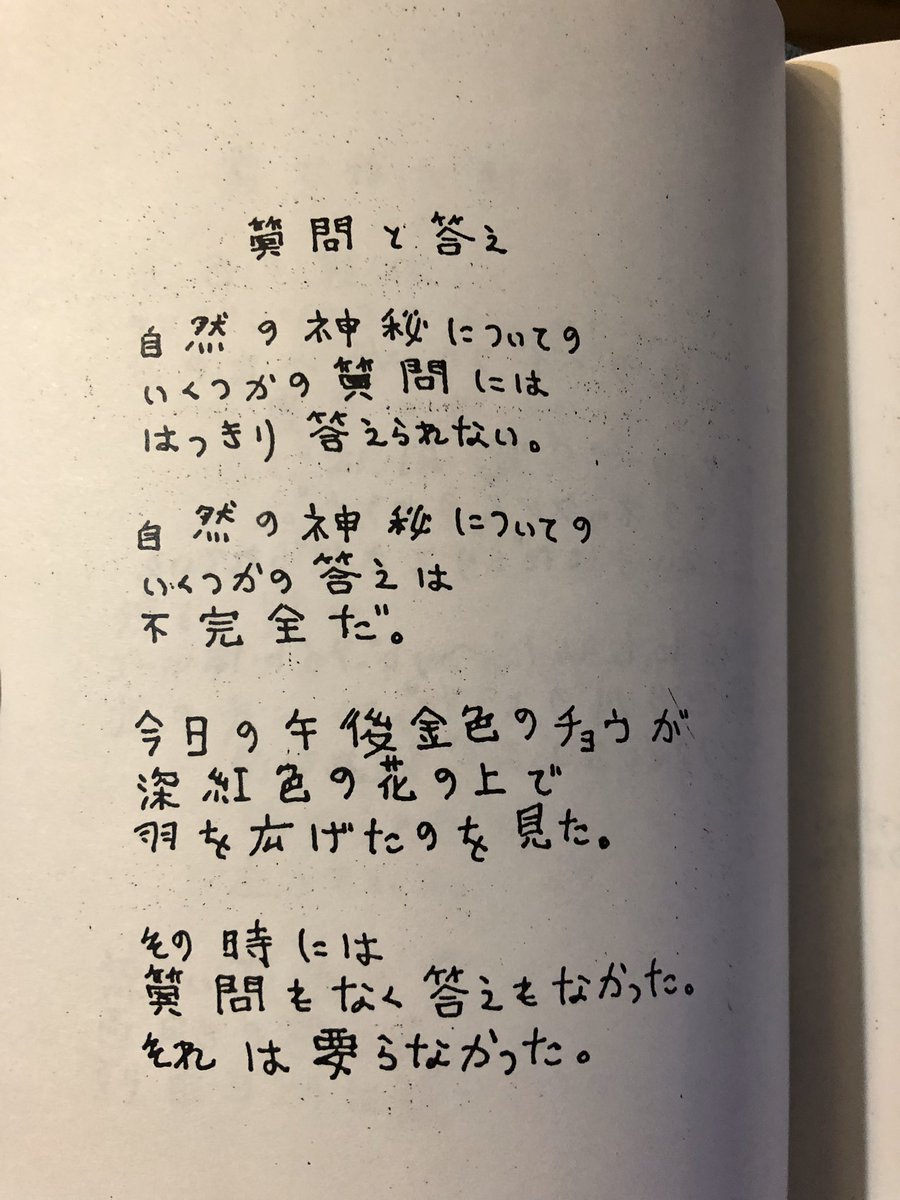 質問と答え
自然の神秘についての
いくつかの質問には
はっきり答えられない。
自然の神秘についての
いくつかの答えは
不完全だ。
今日の午後金色のチョウが
深紅色の花の上で
羽を広げたのを見た。
その時には
質問もなく答えもなかった。
それは要らなかった。